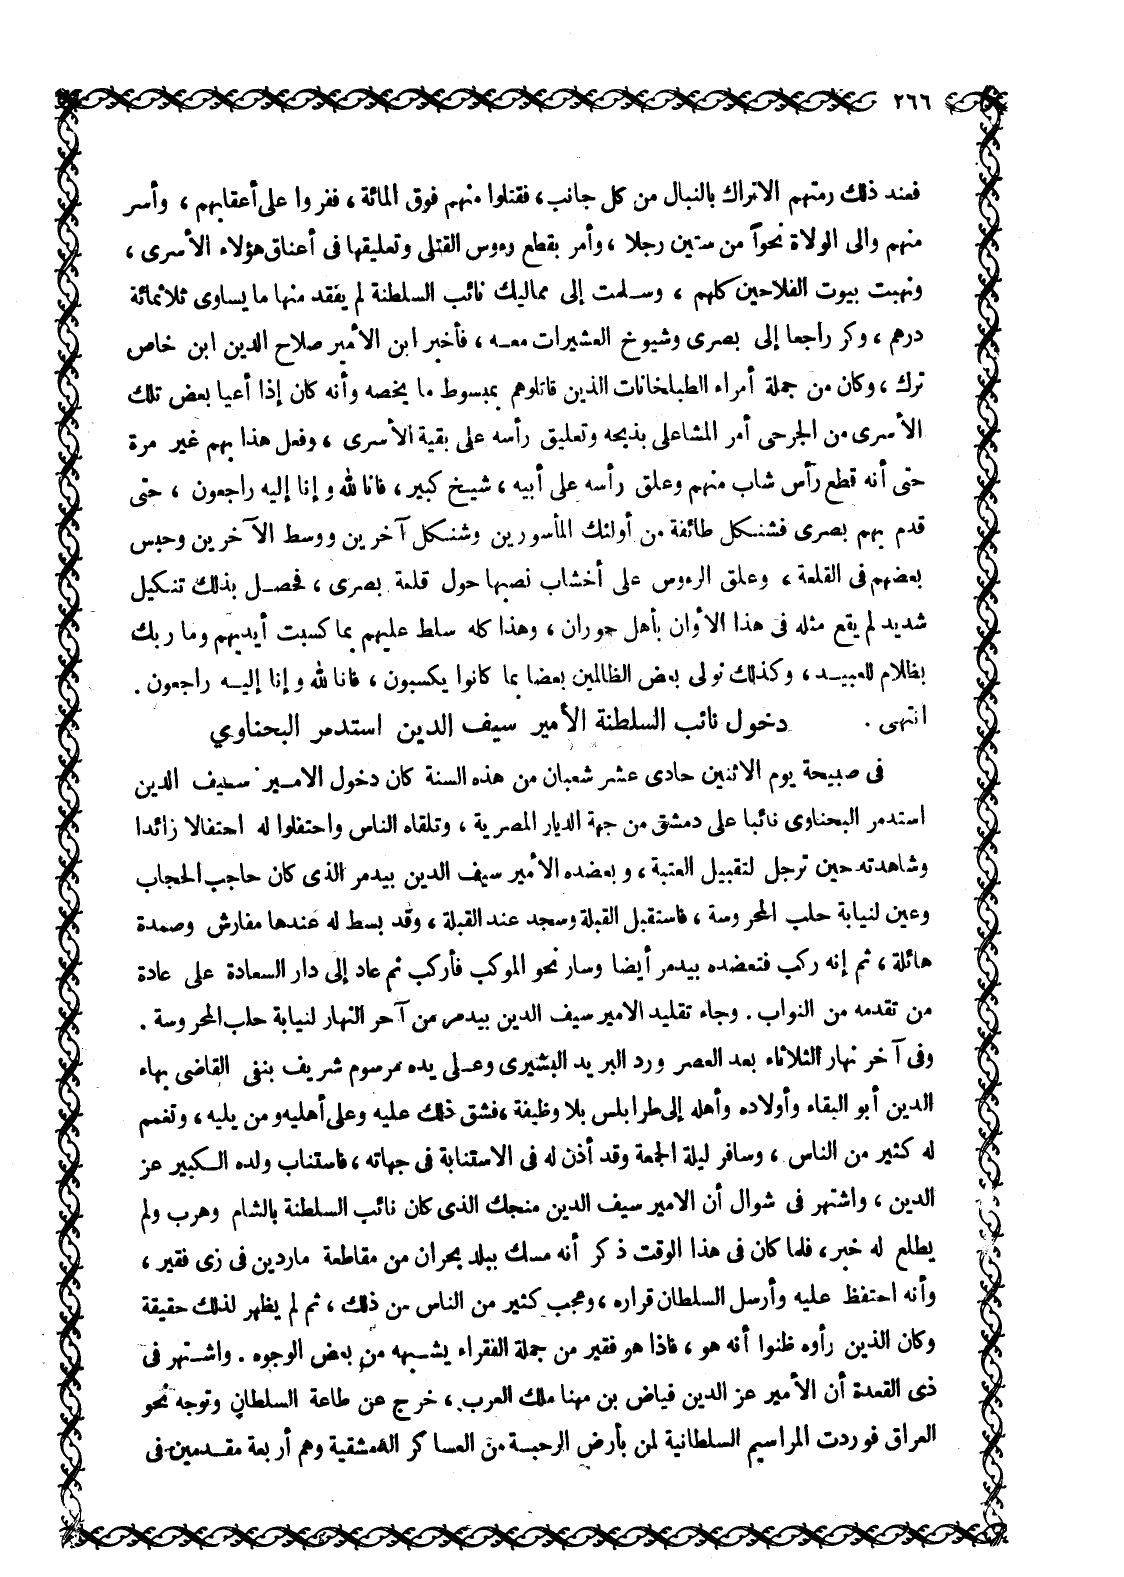 ٢٦٦
فعند ذلك رمتهم الاتراك بالنبال من كل جانب، فقتلوا منهم فوق المائة، ففروا على أعقابهم، وأسر
منهم والى الولاة نحواً من ستين رجلا، وأمر بقطع رءوس القتلى وتعليقها فى أعناق هؤلاء الأسرى،
ونهبت بيوت الفلاحين كلهم، وسلمت إلى مماليك نائب السلطنة لم يفقد منها ما يساوى ثلاثمائة
درهم، وكر راجعا إلى بصرى وشيوخ العشيرات معه، فأخبر ابن الأمير صلاح الدين ابن خاص
ترك، وكان من جملة أمراء الطبلخانات الذين قاتلوهم بمبسوط ما يخصه وأنه كان إذا أعيا بعض تلك
الأسرى من الجرحى أمر المشاعلى بذبحه وتعليق رأسه على بقية الأسرى، وفعل هذا بهم غير مرة
حتى أنه قطع رأس شاب منهم وعلق رأسه على أبيه، شيخ كبير، فانا لله و إنا إليه راجعون، حتى
قدم بهم بصرى فشنكل طائفة من أولئك المأسورين وشنكل آخرين ووسط الآخرين وحبس
بعضهم فى القلعة، وعلق الرءوس على أخشاب نصبها حول قلعة بصرى، فحصل بذلك تنكيل
شديد لم يقع مثله فى هذا الأوان بأهل حوران، وهذا كله سلط عليهم بما كسبت أيديهم وما ربك
بظلام للعبيد، وكذلك نولى بعض الظالمين بعضا بما كانوا يكسبون، فانا لله و إنا إليه راجعون.
انتهى. دخول نائب السلطنة الأمير سيف الدين استدمر البحناوي
فى صبيحة يوم الاثنين حادى عشر شعبان من هذه السنة كان دخول الامير سيف الدين
استدمر البحناوى نائبا على دمشق من جهة الديار المصرية، وتلقاه الناس واحتفلوا له احتفالا زائدا
وشاهدته حين ترجل لتقبيل العتبة، و بعضده الأمير سيف الدين بيدمر الذى كان حاجب الحجاب
وعين لنيابة حلب المحروسة، فاستقبل القبلة وسجد عند القبلة، وقد بسط له عندها مفارش وصمدة
هائلة، ثم إنه ركب فتعضده بيدمر أيضا وسار نحو الموكب فأركب ثم عاد إلى دار السعادة على عادة
من تقدمه من النواب. وجاء تقليد الامير سيف الدين بيدمر من آحر النهار لنيابة حلب المحروسة.
وفى آخر نهار الثلاثاء بعد العصر ورد البريد البشيرى وعلى يده مرسوم شريف بنفى القاضى بهاء
الدين أبو البقاء وأولاده وأهله إلى طرابلس بلا وظيفة، فشق ذلك عليه وعلى أهليه ومن يليه، وتغمم
له كثير من الناس، وسافر ليلة الجمعة وقد أذن له فى الاستنابة فى جهاته، فاستناب ولده الكبير عز
الدين، واشتهر فى شوال أن الامير سيف الدين منجك الذى كان نائب السلطنة بالشام وهرب ولم
يطلع له خبر، فلما كان فى هذا الوقت ذكر أنه مسك ببلد بحران من مقاطعة ماردين فى زى فقير،
وأنه احتفظ عليه وأرسل السلطان قراره، وعجب كثير من الناس من ذلك، ثم لم يظهر لذلك حقيقة
وكان الذين رأوه ظنوا أنه هو، فاذا هو فقير من جملة الفقراء يشبهه من بعض الوجوه. واشتهر فى
ذى القعدة أن الأمير عز الدين فياض بن مهنا ملك العرب، خرج عن طاعة السلطان وتوجه نحو
العراق فوردت المراسيم السلطانية لمن بأرض الرحبة من العساكر الدمشقية وهم أربعة مقدمين فى